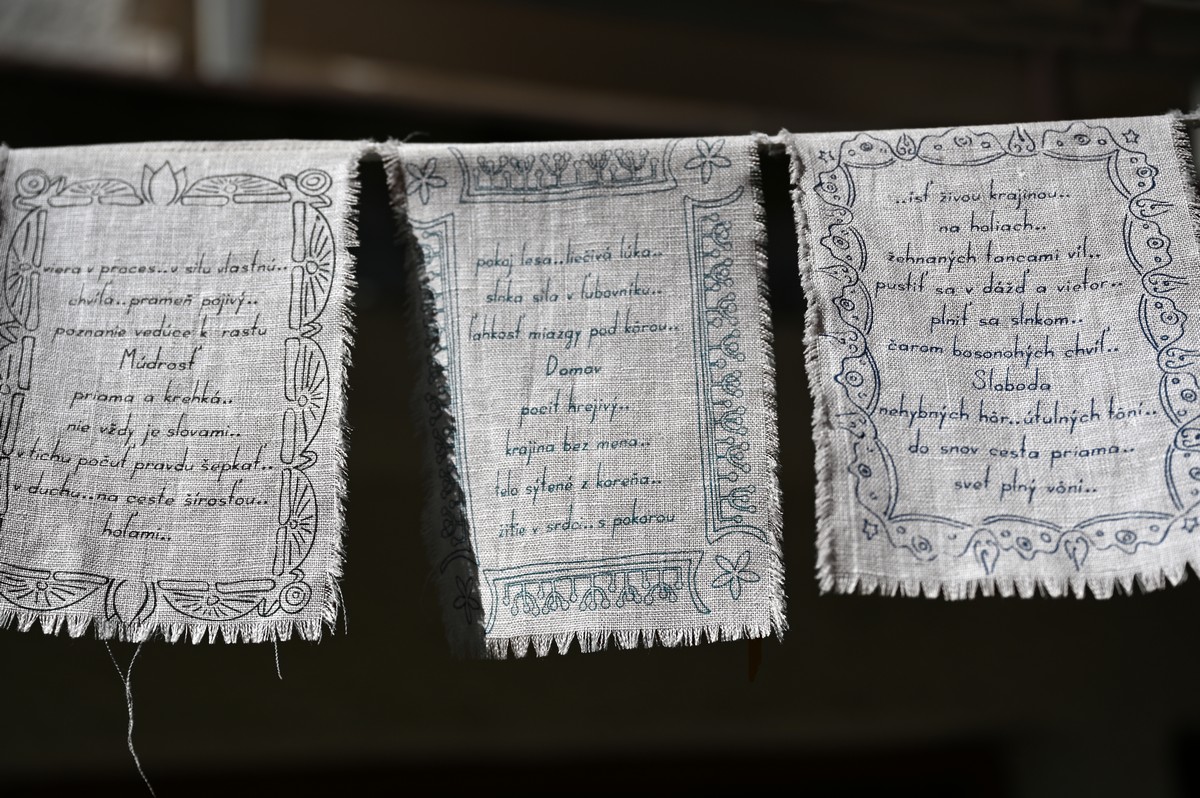 viera v proces..v silu vlastnú..
chvíľa..prameň pojivý..
poznanie vedúce k rastu
Múdrosť
priama a krehká..
nie vždy je slovami..
v tichu počuť pravdu šepkať..
v duchu..na ceste šírosťou..
hoľami..
pokoj lesa..liečivá lúka..
slnka sila v ľubovníku..
ľahkosť miazgy pod kôrou..
Domov
pocit hrejivý..
krajina bez mena..
telo sýtené z koreňa..
žitie v srdci...s pokorou
..ísť živou krajinou..
na holiach..
žohnaných tancami víl..
pustiť sa v dážď a vietor..
plniť sa slnkom..
čarom bosonohých chvíľ..
Sloboda
nehybných hôr..útulných tôní..
do snov cesta priama..
svet plný vôní..